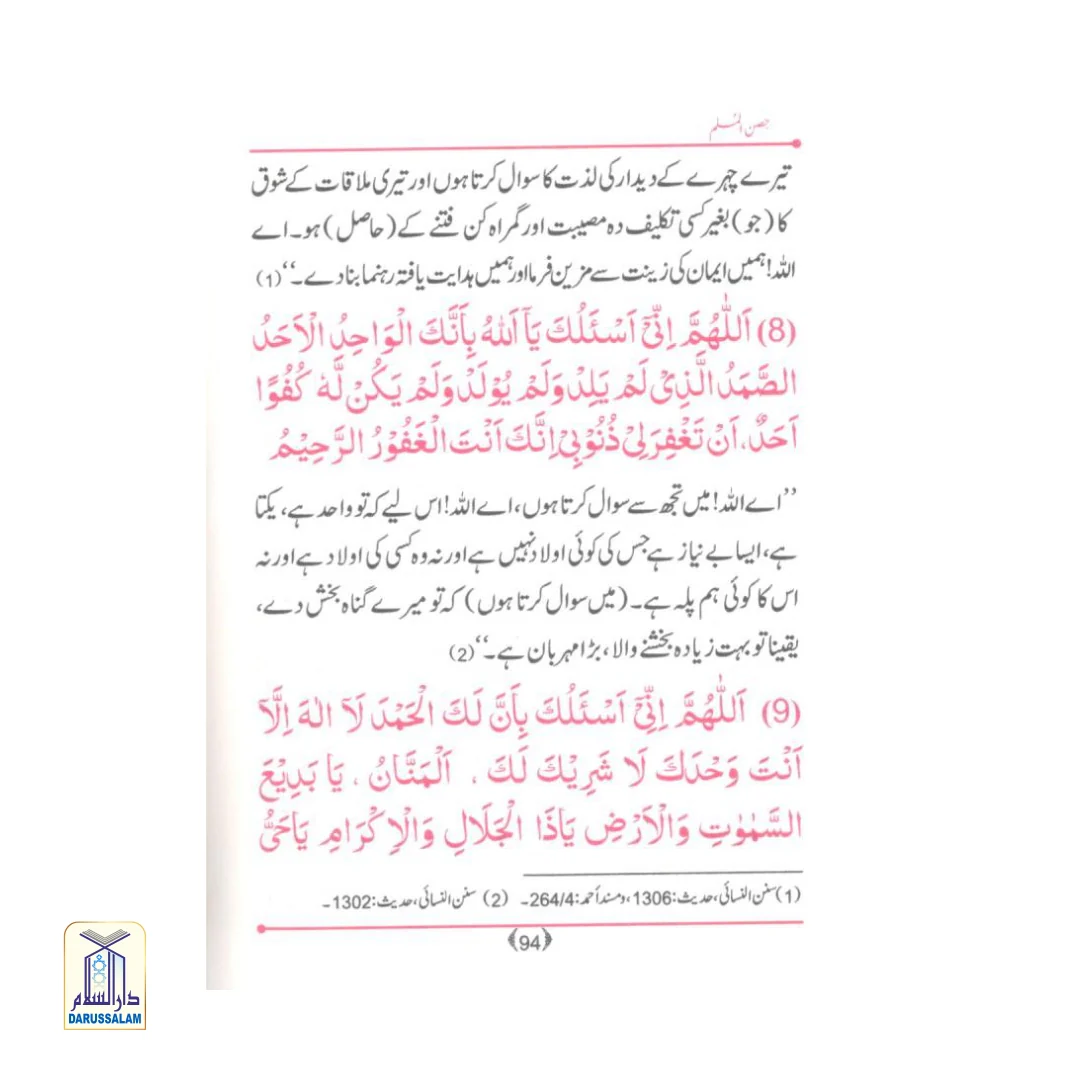 حصن المسلم
تیرے چہرے کے دیدار کی لذت کا سوال کرتا ہوں اور تیری ملاقات کے شوق
کا (جو) بغیر کسی تکلیف دہ مصیبت اور گمراہ کن فتنے کے (حاصل) ہو۔ اے
اللہ! ہمیں ایمان کی زینت سے مزین فرما اور ہمیں ہدایت یافتہ رہنما بنا دے۔‘‘ (1)
(8) اَللّٰهُمَّ اِنِّیْٓ اَسْـَٔلُكَ يَآ اَللّٰهُ بِاَنَّكَ الْوَاحِدُ الْاَحَدُ
الصَّمَدُ الَّذِیْ لَمْ يَلِدْ وَلَمْ يُوْلَدْ وَلَمْ يَكُنْ لَّهٗ كُفُوًا
اَحَدٌ، اَنْ تَغْفِرَ لِیْ ذُنُوْبِیْ اِنَّكَ اَنْتَ الْغَفُوْرُ الرَّحِيْمُ
’’اے اللہ! میں تجھ سے سوال کرتا ہوں، اے اللہ! اس لیے کہ تو واحد ہے، یکتا
ہے، ایسا بے نیاز ہے جس کی کوئی اولاد نہیں ہے اور نہ وہ کسی کی اولاد ہے اور نہ
اس کا کوئی ہم پلہ ہے۔ (میں سوال کرتا ہوں) کہ تو میرے گناہ بخش دے،
یقینا تو بہت زیادہ بخشنے والا، بڑا مہربان ہے۔‘‘ (2)
(9) اَللّٰهُمَّ اِنِّیْٓ اَسْـَٔلُكَ بِاَنَّ لَكَ الْحَمْدَ لَآ اِلٰهَ اِلَّآ
اَنْتَ وَحْدَكَ لَا شَرِيْكَ لَكَ ، اَلْمَنَّانُ ، يَا بَدِيْعَ
السَّمٰوٰتِ وَالْاَرْضِ يَاذَا الْجَلَالِ وَالْاِكْرَامِ يَاحَیُّ
(1) سنن النسائی، حدیث: 1306، ومسند أحمد: 264/4۔ (2) سنن النسائی، حدیث: 1302۔
94
دارالسلام
DARUSSALAM